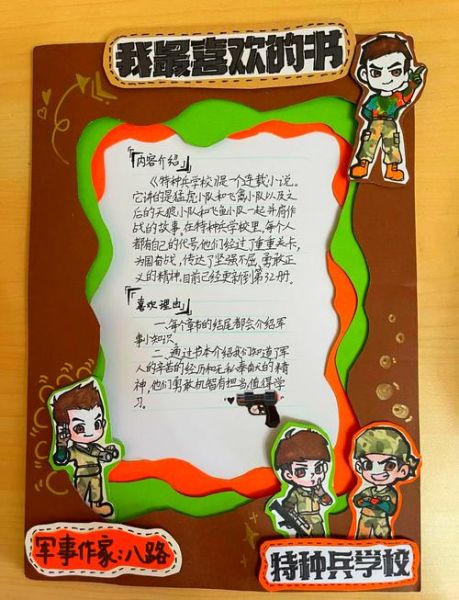 我最喜欢的书
『内容介绍』
《特种兵学校》是一个连载小说。
它讲的是猛虎小队和飞鹰小队以及之
后的天狼小队和飞鱼小队一起并肩作
战的故事。在特种兵学校里,每个人
都有自己的代号,他们经过了重重关卡,
为国奋战,传达了坚强不屈、勇敢正
义的精神。目前已经更新到第32册。
『喜欢理由』
一、每个章节的结尾都会介绍军
事小知识。
二、通过书本介绍我们知道了军
人的辛苦的经历和无私奉献的精
神,他们勇敢机智有担当值得学
习。
军事作家:八路
特种兵学校